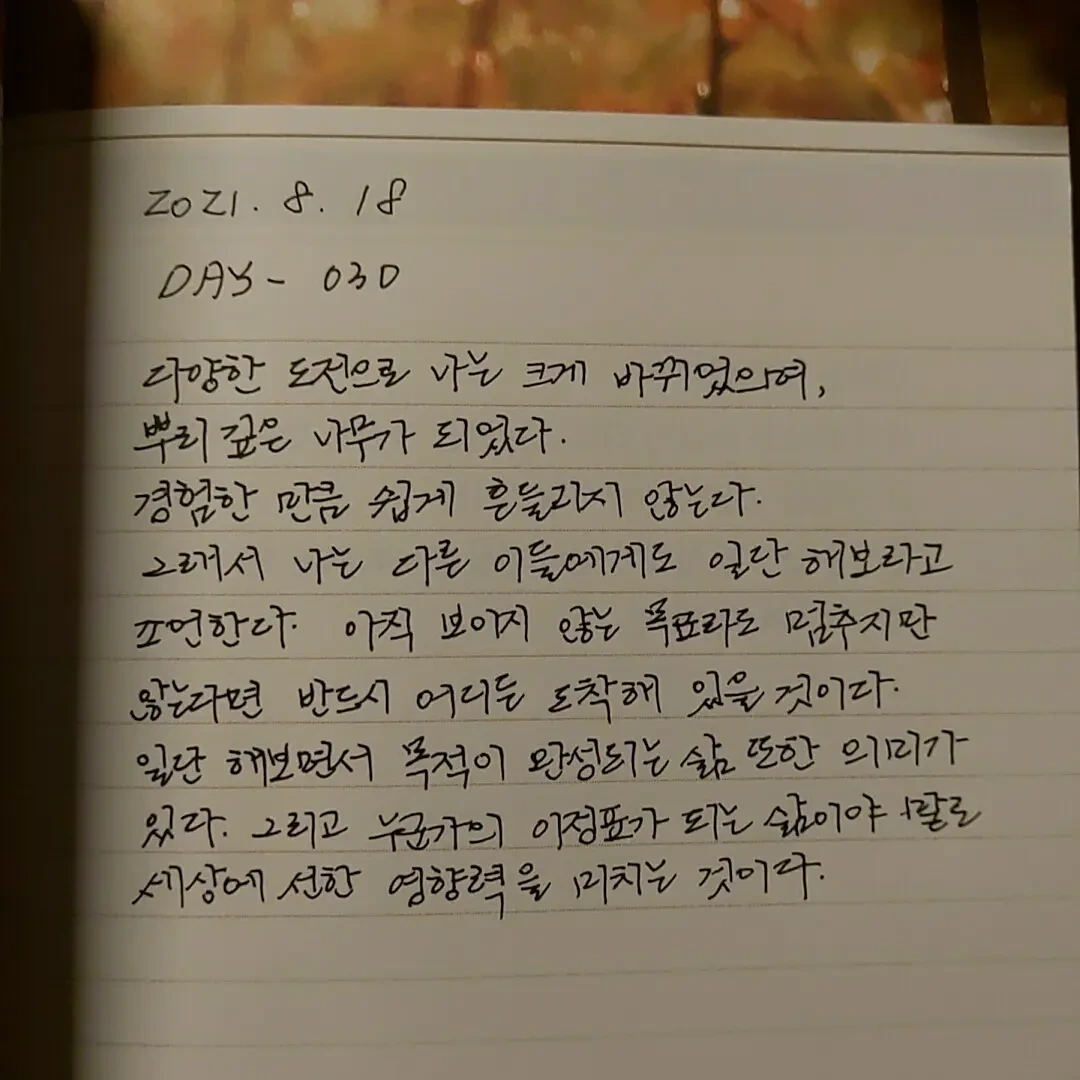 2021. 8. 18
DAY - 030
다양한 도전으로 나는 크게 바뀌었으며,
뿌리 깊은 나무가 되었다.
경험한 만큼 쉽게 흔들리지 않는다.
그래서 나는 다른 이들에게도 일단 해보라고
조언한다. 아직 보이지 않는 목표라도 멈추지만
않는다면 반드시 어디든 도착해 있을 것이다.
일단 해보면서 목적이 완성되는 삶 또한 의미가
있다. 그리고 누군가의 이정표가 되는 삶이야 말로
세상에 선한 영향력을 미치는 것이다.